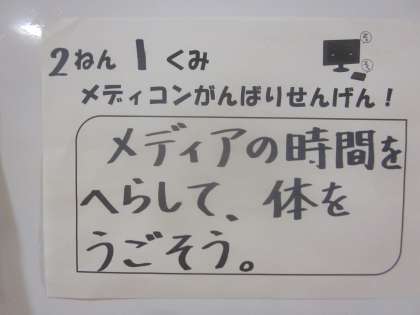 2ねん 1 くみ
メディコンがんばりせんげん!
メディアの時間を
へらして、体を
うごそう。